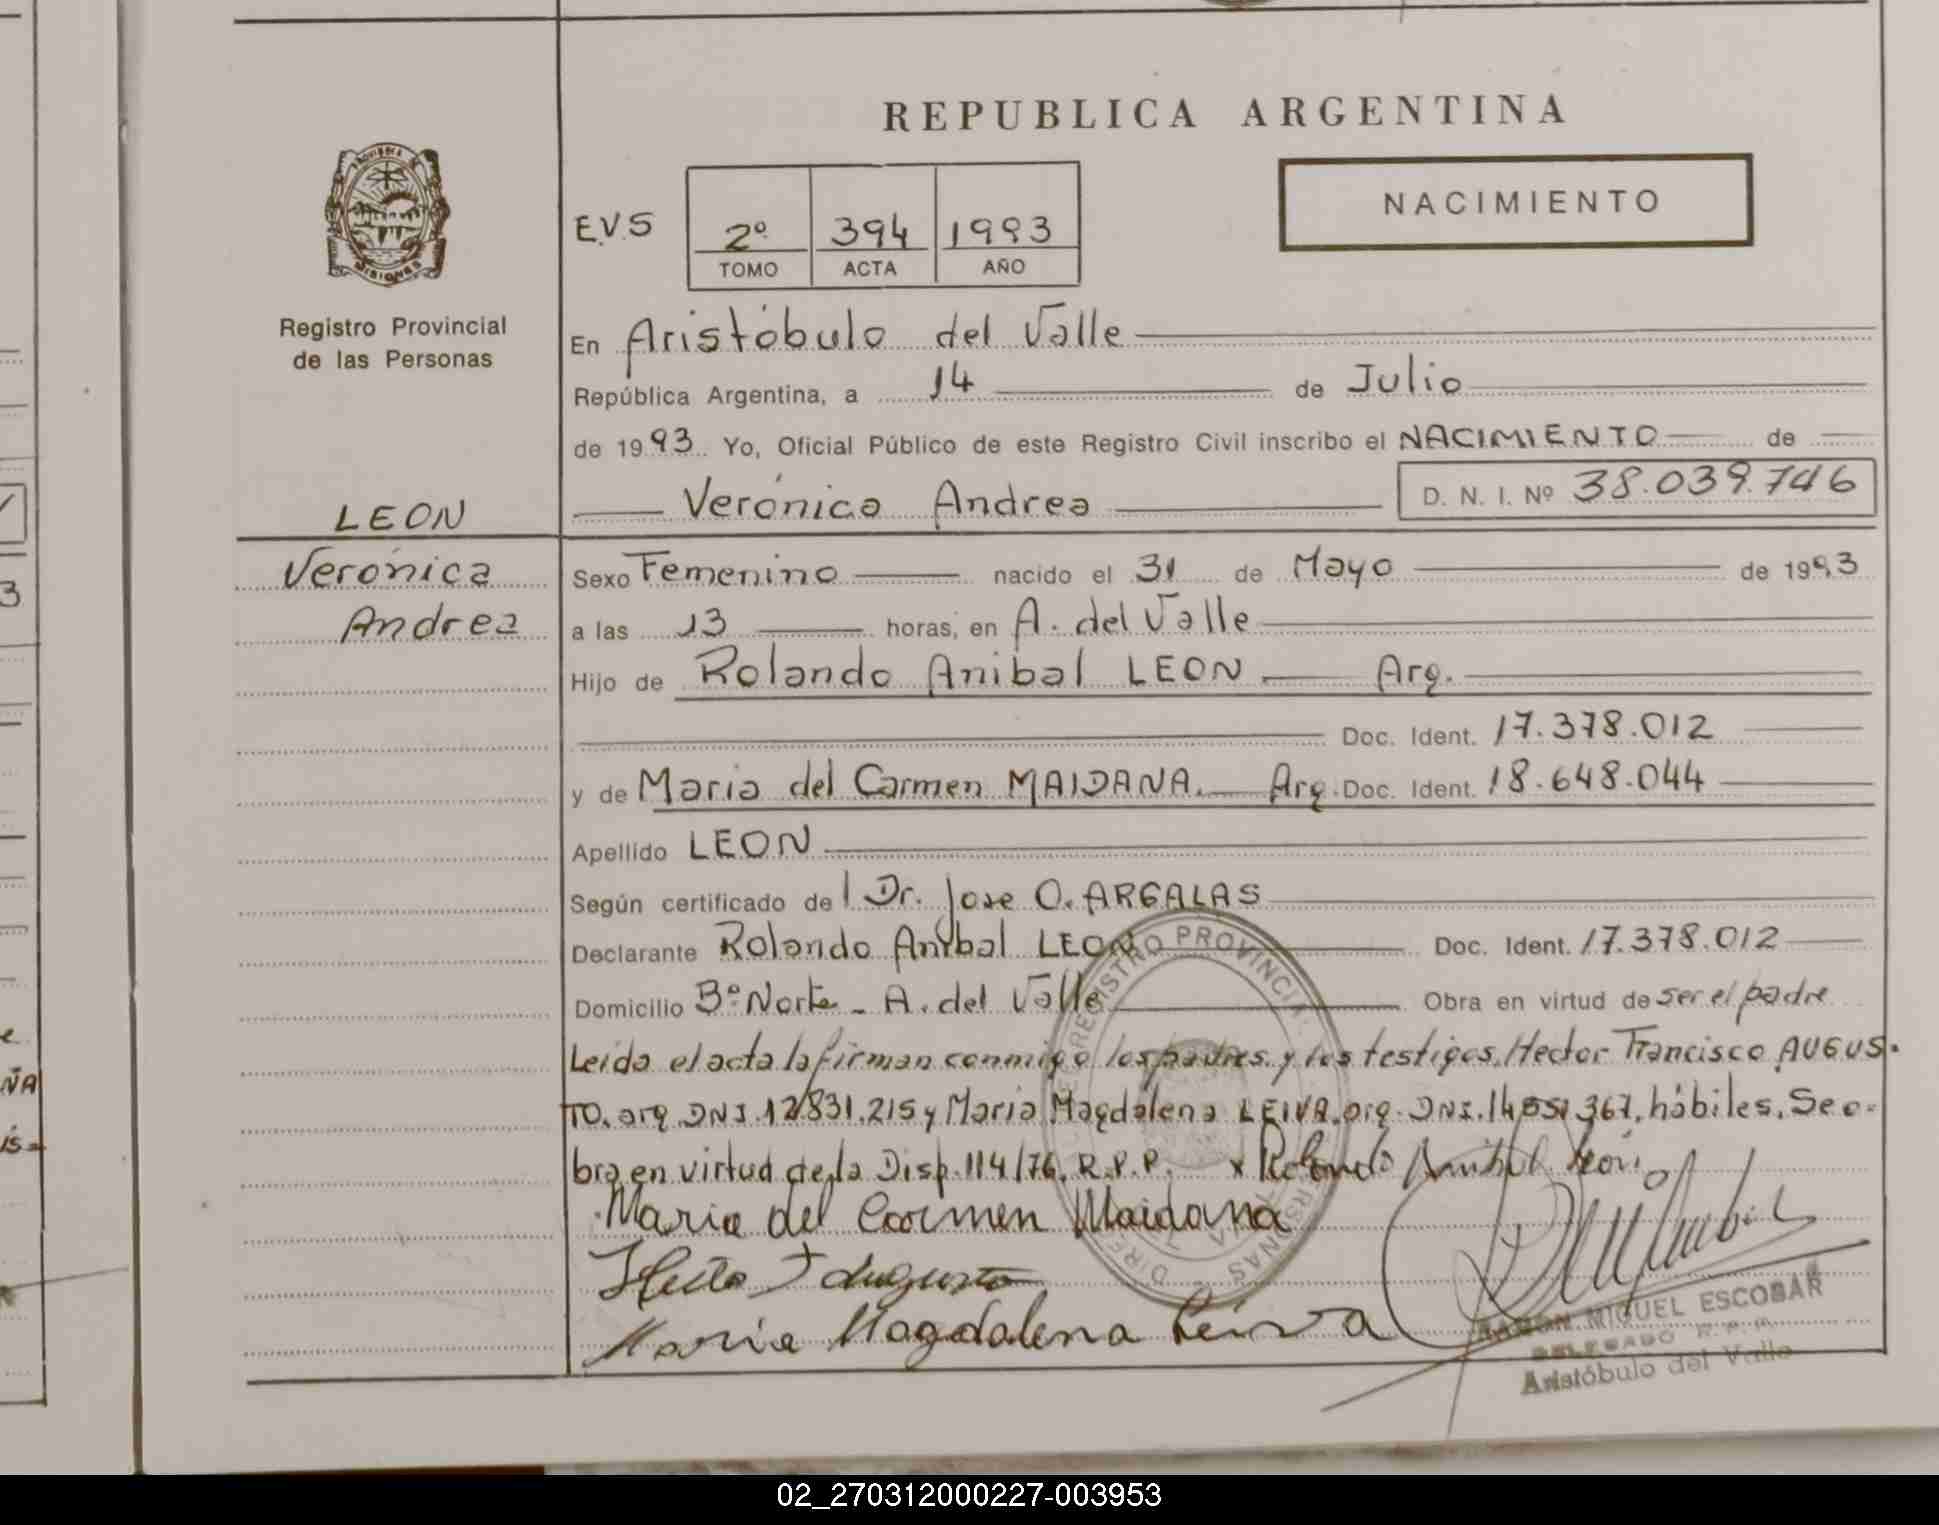 REPUBLICA ARGENTINA
NACIMIENTO
E.V.S
2º 394 1993
TOMO ACTA AÑO
MISIONES
Registro Provincial
de las Personas
En Aristóbulo del Valle
República Argentina, a 14 de Julio
de 1993. Yo, Oficial Público de este Registro Civil inscribo el NACIMIENTO de
Verónica Andrea D. N. I. Nº 38.039.746
LEON
Verónica
Andrea
Sexo Femenino nacido el 31 de Mayo de 1993
a las 13 horas, en A. del Valle
Hijo de Rolando Anibal LEON Arg.
Doc. Ident. 17.378.012
y de Maria del Carmen MAIDANA. Arg. Doc. Ident. 18.648.044
Apellido LEON
Según certificado del Dr. Jose O. ARGALAS
Declarante Rolando Anibal LEON Doc. Ident. 17.378.012
Domicilio Bº Norte - A. del Valle Obra en virtud de ser el padre
Leída el acta la firman conmigo los padres y los testigos, Hector Francisco AUGUS-
TO. arg. DNI. 12.831.215 y Maria Magdalena LEIVA. arg. DNI. hábiles. Se o-
bra en virtud de la Disp. 114/76. R.P.P. x Rolando Anibal Leon
Maria del Carmen Maidana
Hector F Augusto
Maria Magdalena Leiva
RAMON MIGUEL ESCOBAR
DELEGADO R.P.P.
Aristóbulo del Valle
REGISTRO PROVINCIAL
02_270312000227-003953